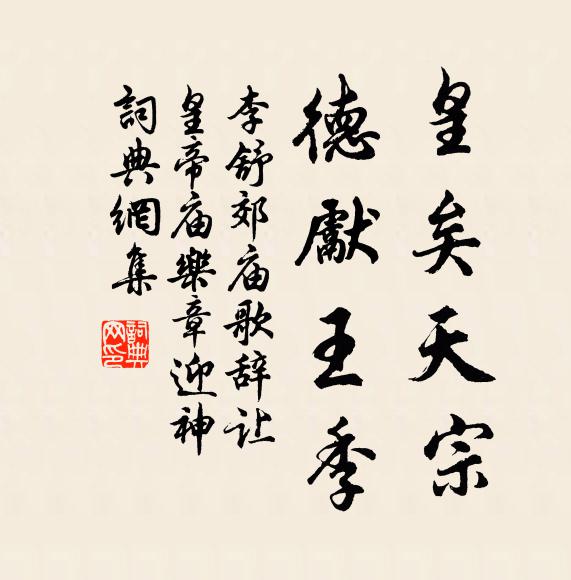 皇矣天宗
德獻王季
李舒郊庙歌辞让
皇帝庙樂章迎神
詞典網集
詞典
网印